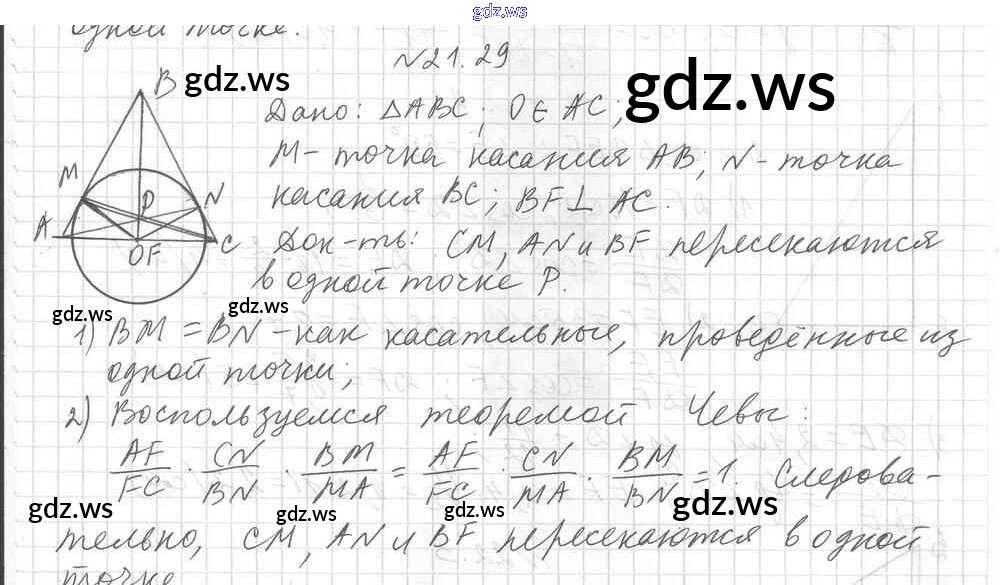 gdz.ws
одной точке.
№21.29
B
gdz.ws
gdz.ws
Дано: ΔABC; O∈AC;
M
M - точка касания AB; N - точка
N
P
касания BC; BF⊥AC.
A
C
OF
Док-ть: CM, AN и BF пересекаются
в одной точке P.
gdz.ws
gdz.ws
1) BM = BN - как касательные, проведённые из
одной точки;
2) Воспользуемся теоремой Чевы:
AF/FC · CN/BN · BM/MA = AF/FC · CN/MA · BM/BN = 1. Следова-
gdz.ws
gdz.ws
gdz.ws
gdz.ws
тельно, CM, AN и BF пересекаются в одной
точке